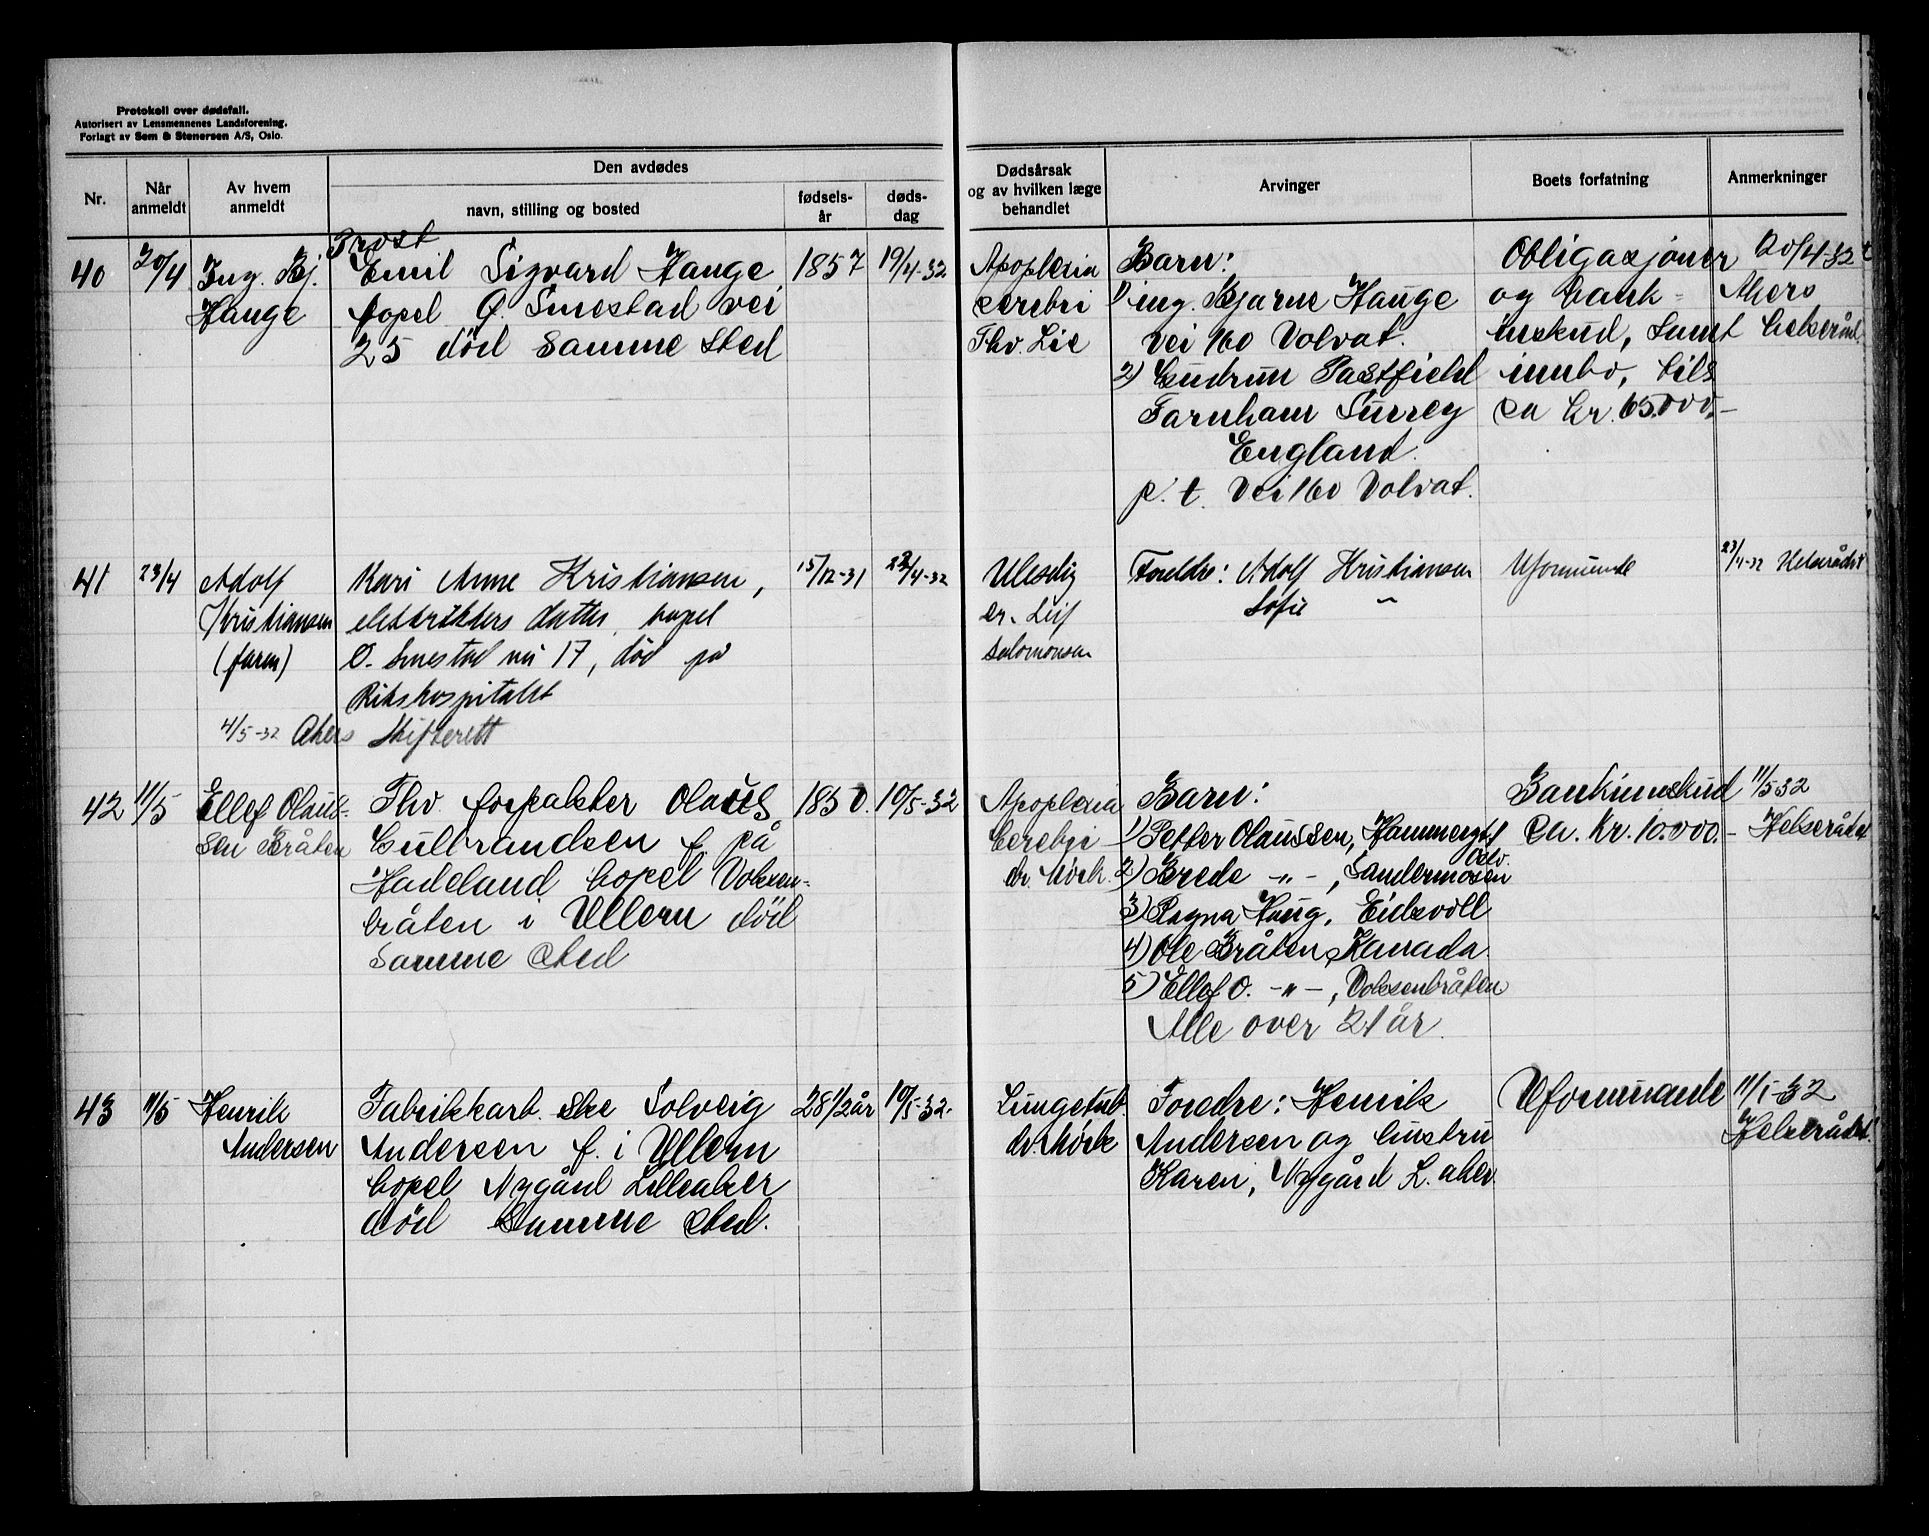 Protokoll over dødsfall.
Autorisert av Lensmennenes Landsforening.
Forlagt av Sem & Stenersen A/S, Oslo.
Nr.
Når anmeldt
Av hvem anmeldt
Den avdødes
navn, stilling og bosted
fødsels-år
døds-dag
Dødsårsak og av hvilken læge behandlet
Arvinger
Boets forfatning
Anmerkninger
40
20/4
Ing. Bj.
Hauge
Prost
Emil Sigvard Hauge
bopel Ø. Smestad vei
25 död samme sted
1857
19/4-32
Apoplexia
cerebri
Thv. Lie
Barn:
1) ing. Bjarne Hauge
vei 160 Volvat.
2) Gudrun Pastfield
Farnham Surrey
England.
p.t. Vei 160 Volvat.
Obligasjoner
og bank-
innskud, samt
innbo, bils
ca kr. 65.000.-
20/4-32 t
Akers
helseråd
41
23/4
Adolf
Kristiansen
(faren)
Kari Anne Kristiansen,
elektrikers datter, bopel
Ø. Smestad vei 17, död på
Rikshospitalet
15/12-31
22/4-32
Ulesdig
Dr. Leif
Salomonsen
Foreldre: Adolf Kristiansen
Sofie -"-
Uformuende
23/4-32 Helserådet
4/5-32 Akers Skifterett
42
11/5
Ellef Olaus-
sen Bråten
Fhv. forpakter Olaus
Gulbrandsen f. på
Hadeland bopel Voksen-
bråten i Ullern död
samme sted
1850.
10/5-32
Apoplexia
cerebri
dr. Mörk.
Barn:
1) Petter Olaussen, Hammergt. 1
Oslo.
2) Brede -"-, Sandermosen
3) Ragna Haug, Eidsvoll
4) Ole Bråten, Kanada.
5) Ellef O. -"-, Voksenbråten
Alle over 21 år.
Bankinnskud
ca. kr. 10.000.-
11/5 32
Helserådet
43
11/5
Henrik
Andersen
Fabrikkarb.ske Solveig
Andersen f. i Ullern
bopel Nygård Lilleaker
död samme sted.
28 1/2 år
10/5-32.
Lungetub.
dr. Mörk
Foredre: Henrik
Andersen og hustru
Karen, Nygård L.aker.
Uformuende
11/5-32
Helserådet